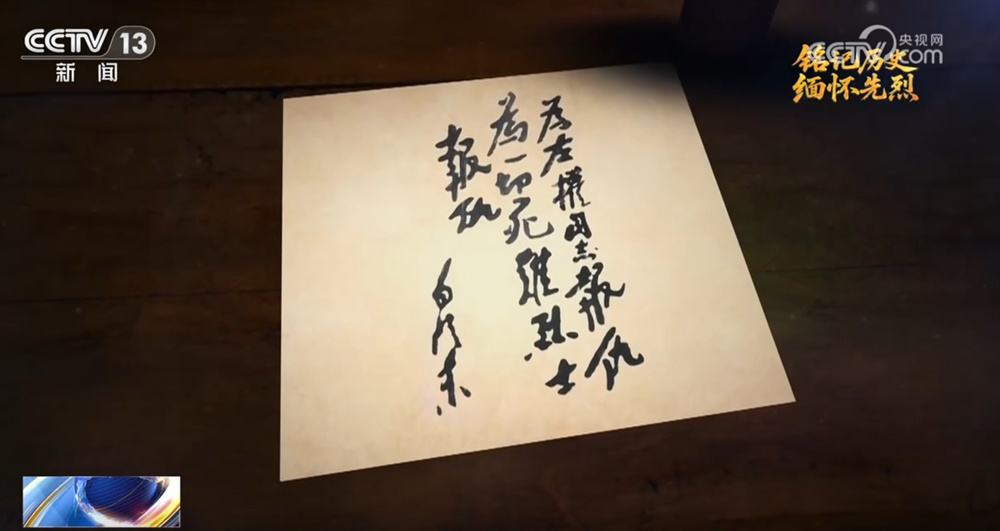 CCTV 13
新闻
央视网
CCTV.com
铭记历史
缅怀先烈
为左權同志報仇
為一切死難烈士
報仇
毛泽东